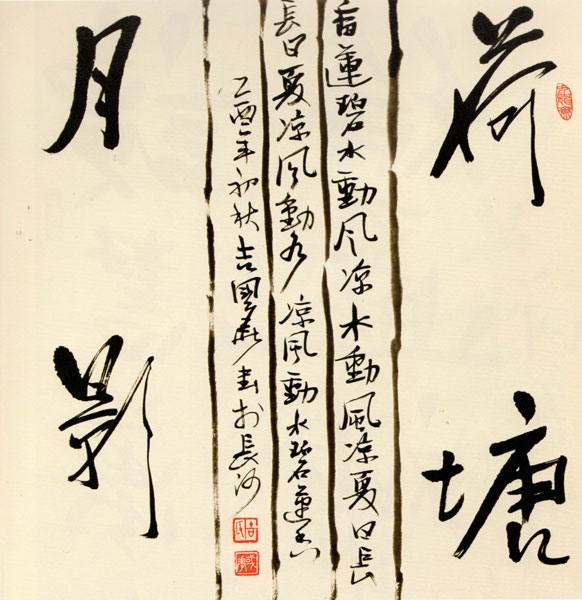 荷塘
香蓮碧水動风凉水動風凉夏日長
長日夏凉风動水凉風動水碧蓮香
乙酉年初秋吉國書於長沙
月影